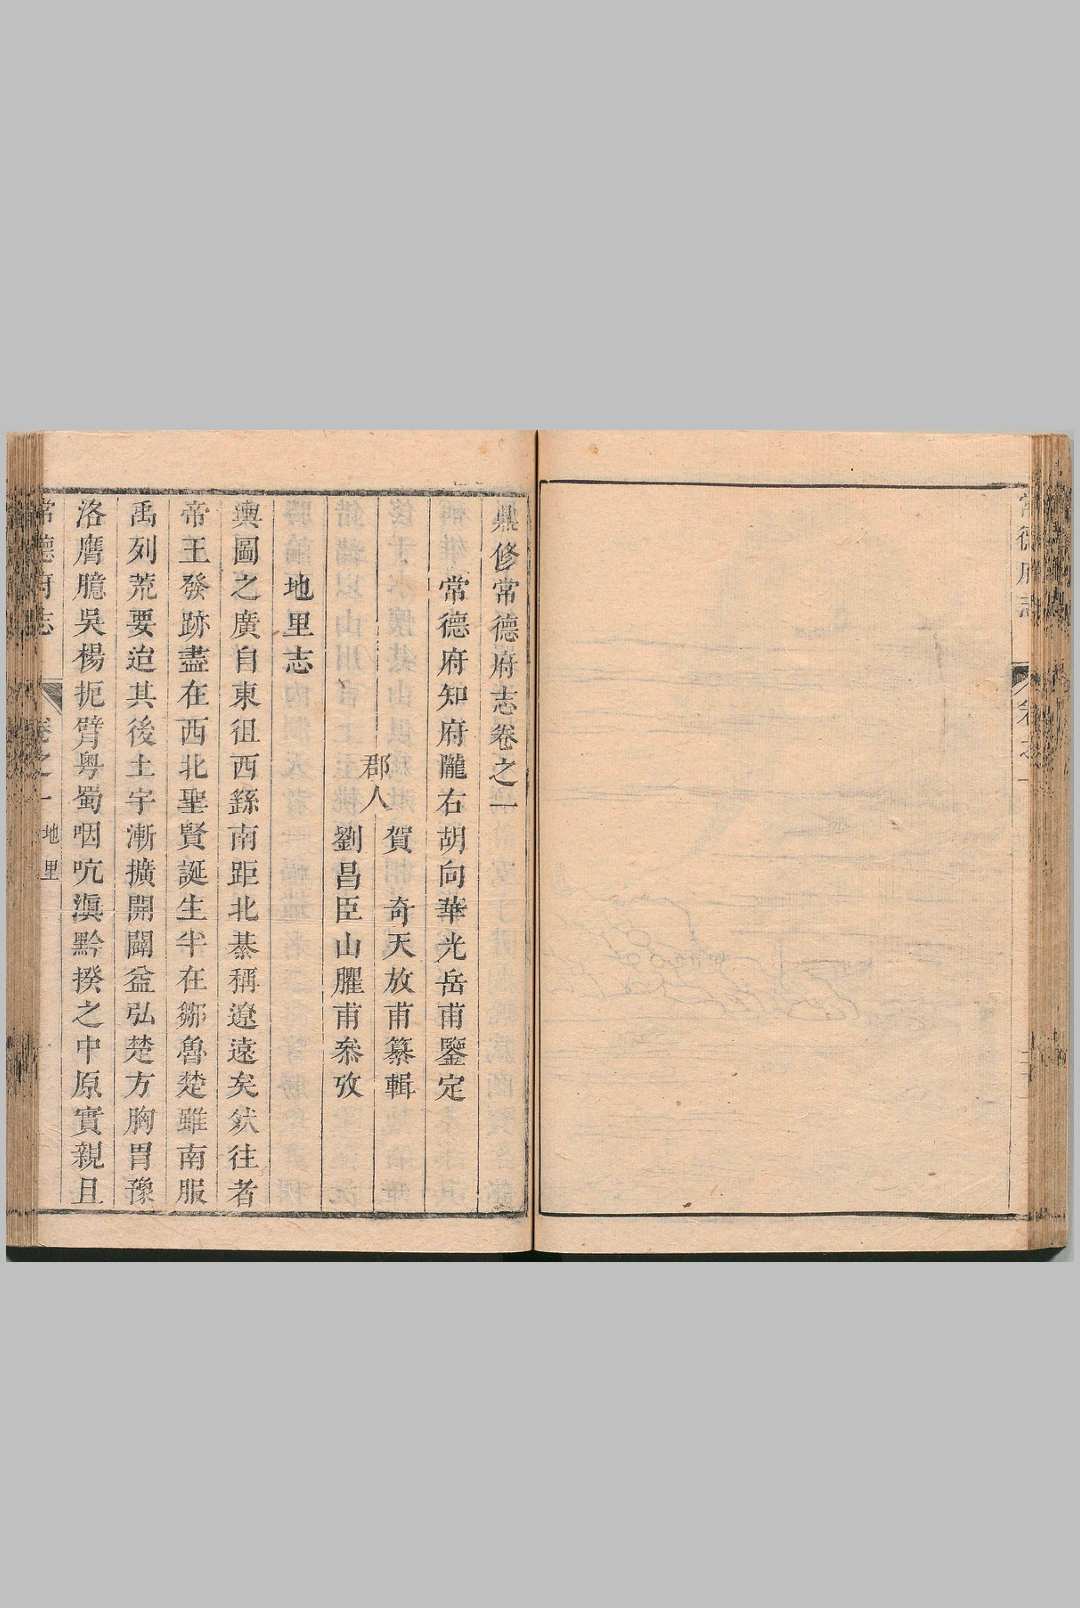 常德府志
鼎修常德府志卷之一
常德府知府隴右胡向華光岳甫鑒定
郡人
賀奇天放甫纂輯
劉昌臣山臞甫叅攷
地里志
輿圖之廣自東徂西繇南距北綦稱遼遠矣然往者
帝王發跡盡在西北聖賢誕生半在鄒魯楚雖南服
禹列荒要迨其後土宇漸擴開闢益弘楚方胸胃豫
洛膺臆吳楊扼臂粵蜀咽吭滇黔揆之中原實親且
常德府志
卷之一
地里